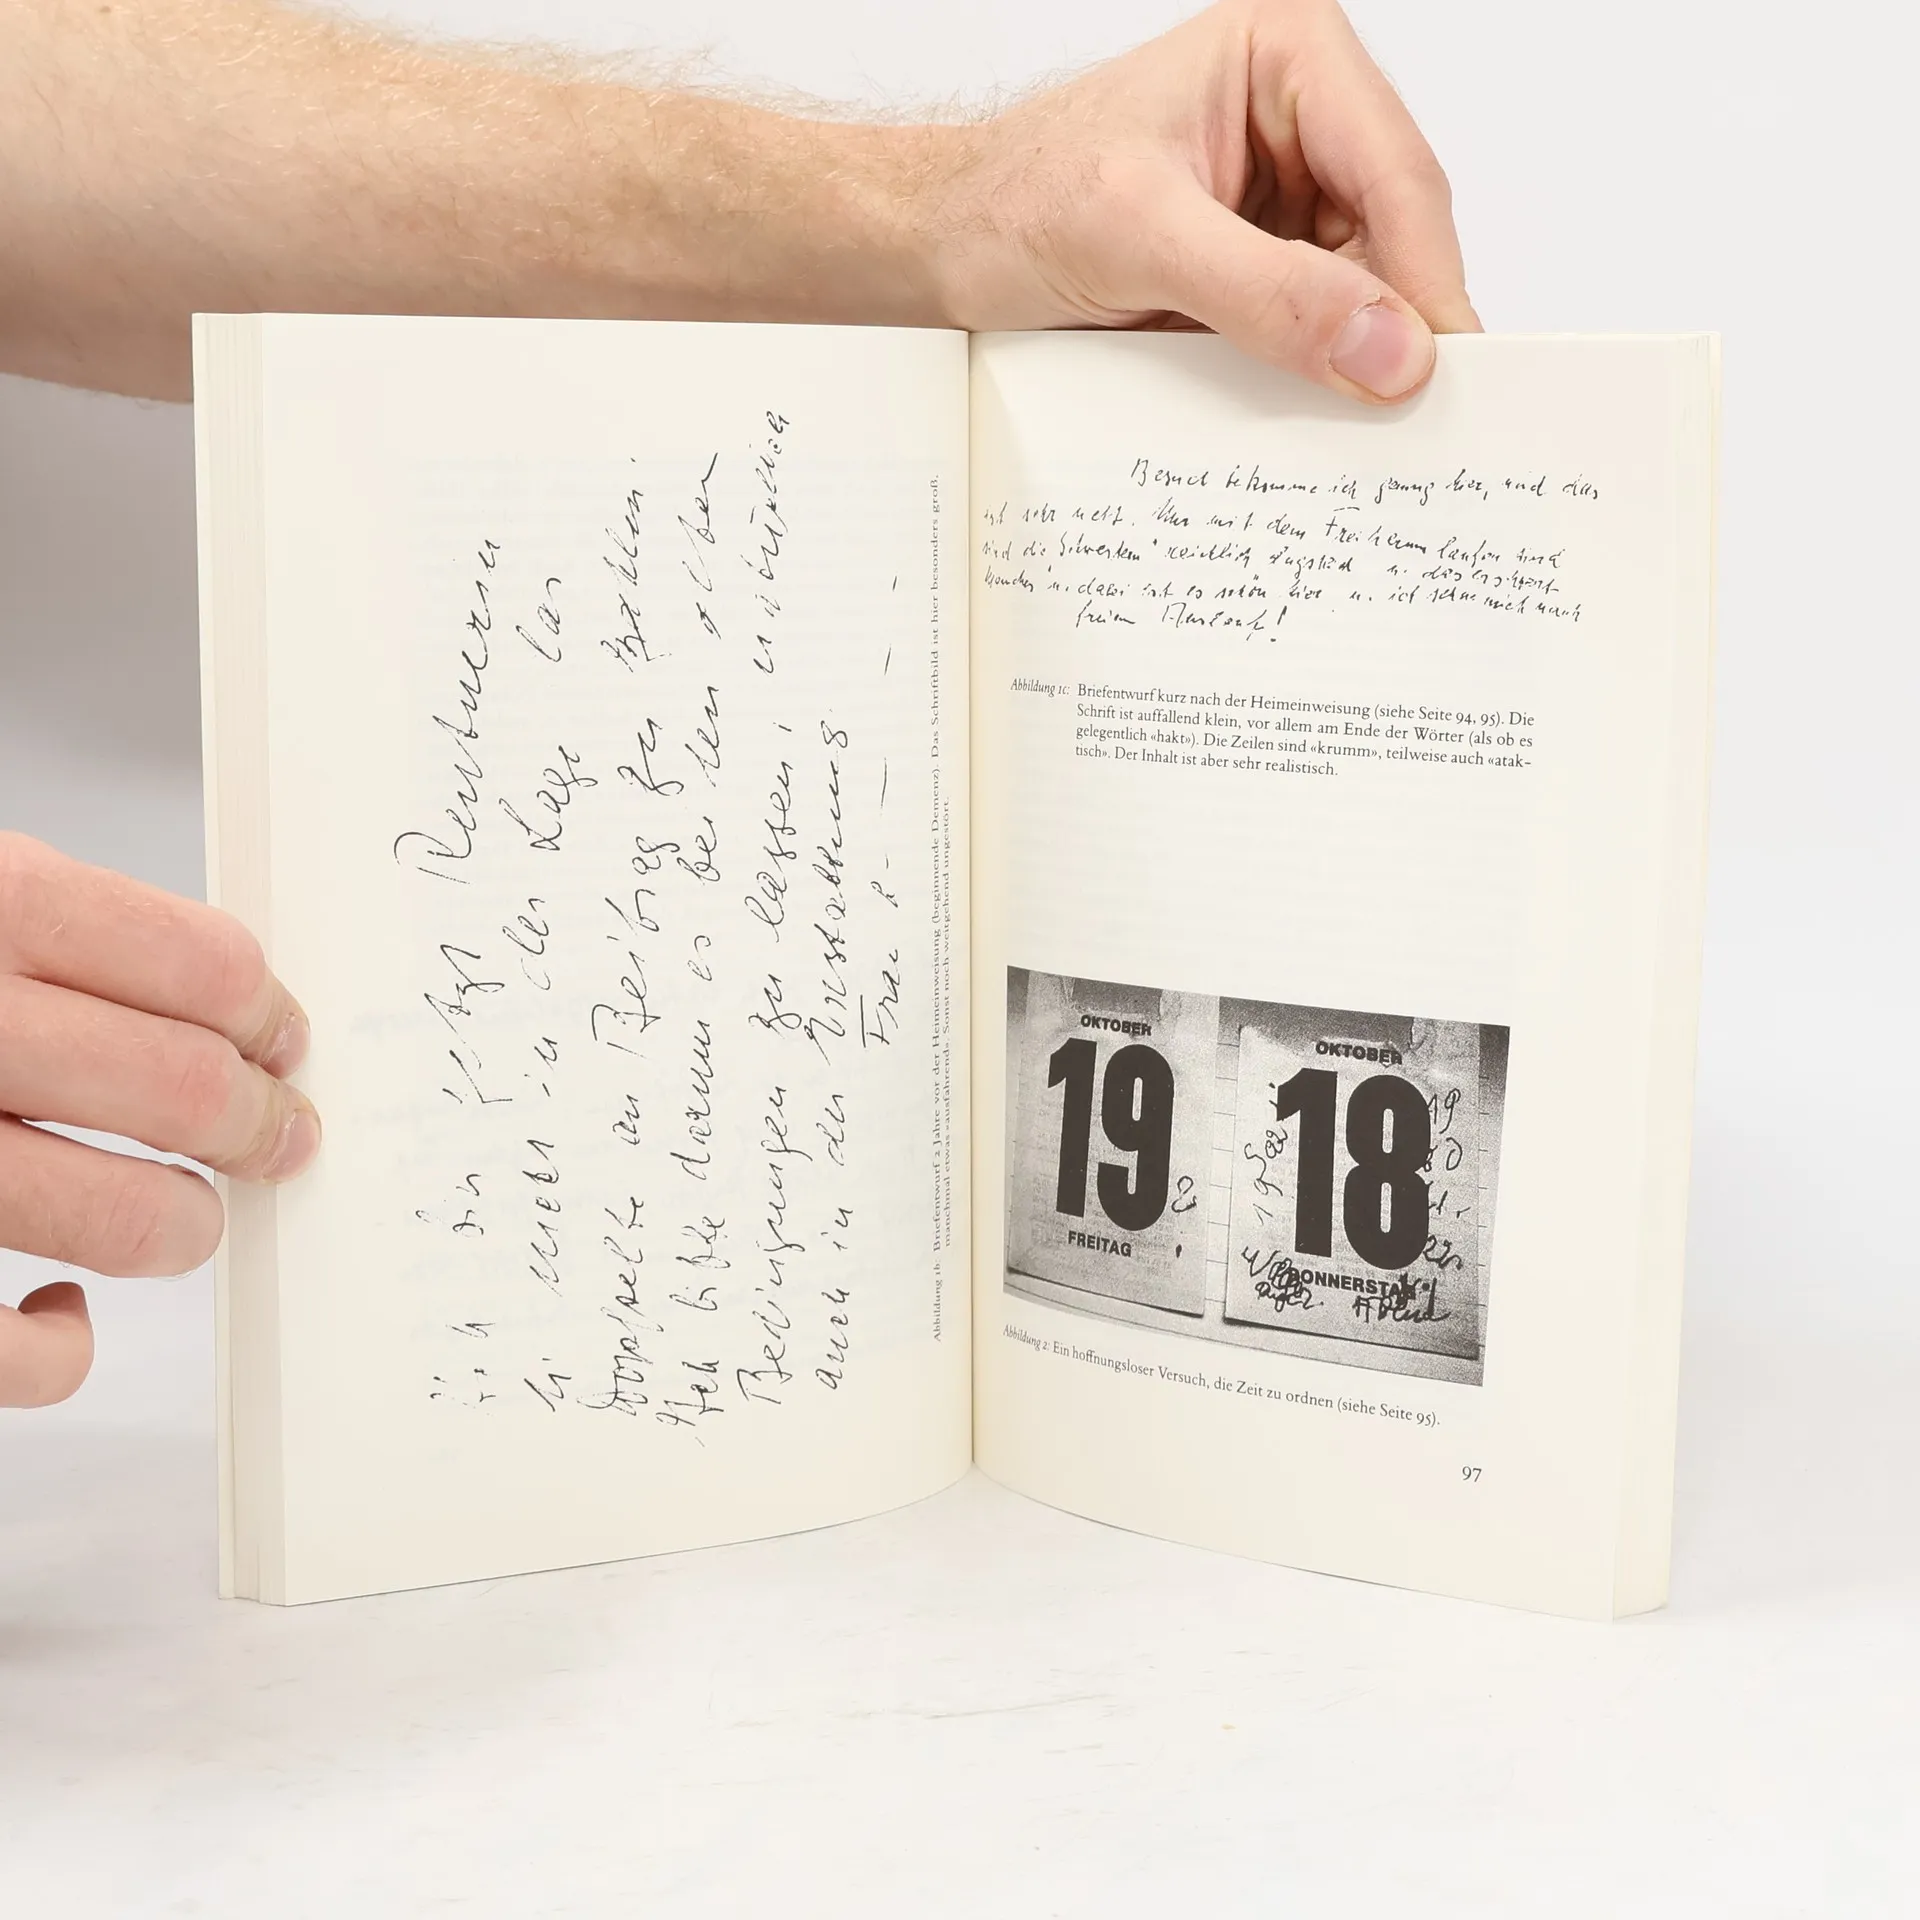 Ich bin jetzt Rentnerin
u. nicht in der Lage das
Doppelte an Beitrag zu zahlen.
Ich bitte darum es bei den alten
Bedingungen zu lassen, natürlich
auch in der Erstattung.
Frau
Abbildung 1b: Briefentwurf 2 Jahre vor der Heimeinweisung (beginnende Demenz). Das Schriftbild ist hier besonders groß,
manchmal etwas «ausfahrend». Sonst noch weitgehend ungestört.
Besuch bekomme ich genug hier, und das
ist sehr nett. Nur mit dem Freiherum laufen sind
sind die Schwestern reichlich ängstlich u. das erschwert
manches u. dabei ist es schön hier u. ich sehne mich nach
freiem
Abbildung 1c: Briefentwurf kurz nach der Heimeinweisung (siehe Seite 94, 95). Die
Schrift ist auffallend klein, vor allem am Ende der Wörter (als ob es
gelegentlich «hakt»). Die Zeilen sind «krumm», teilweise auch «atak-
tisch». Der Inhalt ist aber sehr realistisch.
OKTOBER
19
FREITAG
OKTOBER
18
DONNERSTAG
19
Abbildung 2: Ein hoffnungsloser Versuch, die Zeit zu ordnen (siehe Seite 95).
97